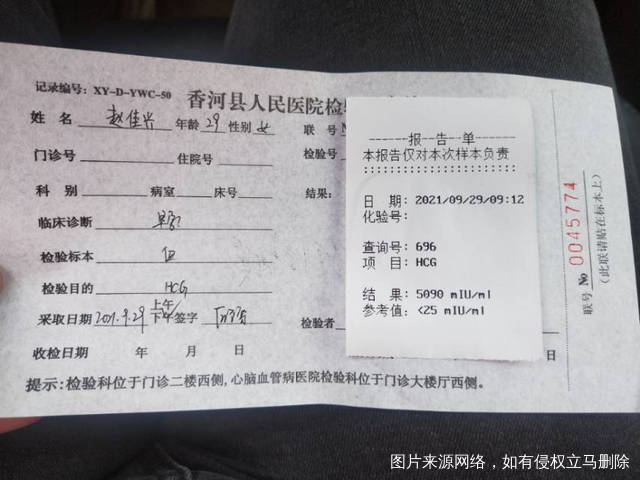 记录编号：XY-D-YWC-50 香河县人民医院检验
姓 名 赵佳兴 年龄 29 性别 女 联 号 N
门诊号 住院号 检验号
科 别 病室 床号 结果：
临床诊断 早孕
检验标本 血
检验目的 HCG
采取日期 2021.9.29 上午 下午 签字
检验者
收检日期 年 月 日 日
提示：检验科位于门诊二楼西侧，心脑血管病医院检验科位于门诊大楼厅西侧。
------报 告 单------
本报告仅对本次样本负责
日 期：2021/09/29/09:12
化验号：
查询号：696
项 目：HCG
结 果：5090 mIU/ml
参考值：<25 mIU/ml
联号 No 0045774
（此联请贴在标本上）
图片来源网络，如有侵权立马删除